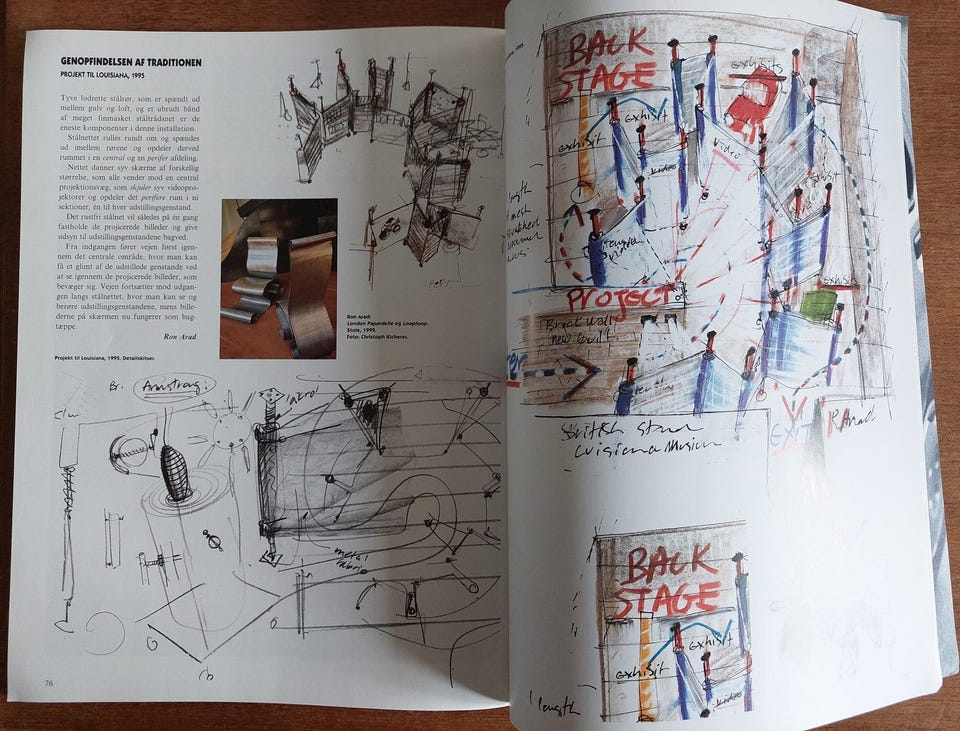 GENOPFINDELSEN AF TRADITIONEN
PROJEKT TIL LOUISIANA, 1995
Tyve lodrette stålrør, som er spændt ud
mellem gulv og loft, og et ubrudt bånd
af meget finmasket ståltrådsnet er de
eneste komponenter i denne installation.
Stålnettet rulles rundt om og spændes
ud imellem rørene og opdeler derved
rummet i en central og en perifer afdeling.
Nettet danner syv skærme af forskellig
størrelse, som alle vender mod en central
projektionsvæg, som skjuler syv videopro-
jektorer og opdeler det perifere rum i ni
sektioner, én til hver udstillingsgenstand.
Det rustfri stålnet vil således på én gang
fastholde de projicerede billeder og give
udsyn til udstillingsgenstandene bagved.
Fra indgangen fører vejen først igen-
nem det centrale område, hvor man kan
få et glimt af de udstillede genstande ved
at se igennem de projicerede billeder, som
bevæger sig. Vejen fortsætter mod udgan-
gen langs stålnettet, hvor man kan se og
berøre udstillingsgenstandene, mens bille-
derne på skærmen nu fungerer som bag-
tæppe.
Ron Arad
Projekt til Louisiana, 1995. Detailskitser.
Ron Arad:
London Papardelle og Looploop.
Stole, 1992.
Foto: Christoph Kicherer.
Br. Armstrong.
metal
fabric
76
BACK
STAGE
exhibits
exhibit
exhibit
video
video
length
PROJECT
Brick wall
new built
EXIT
R Arad
British
Louisiana Museum
BACK
STAGE
exhibit
exhibit
video
length